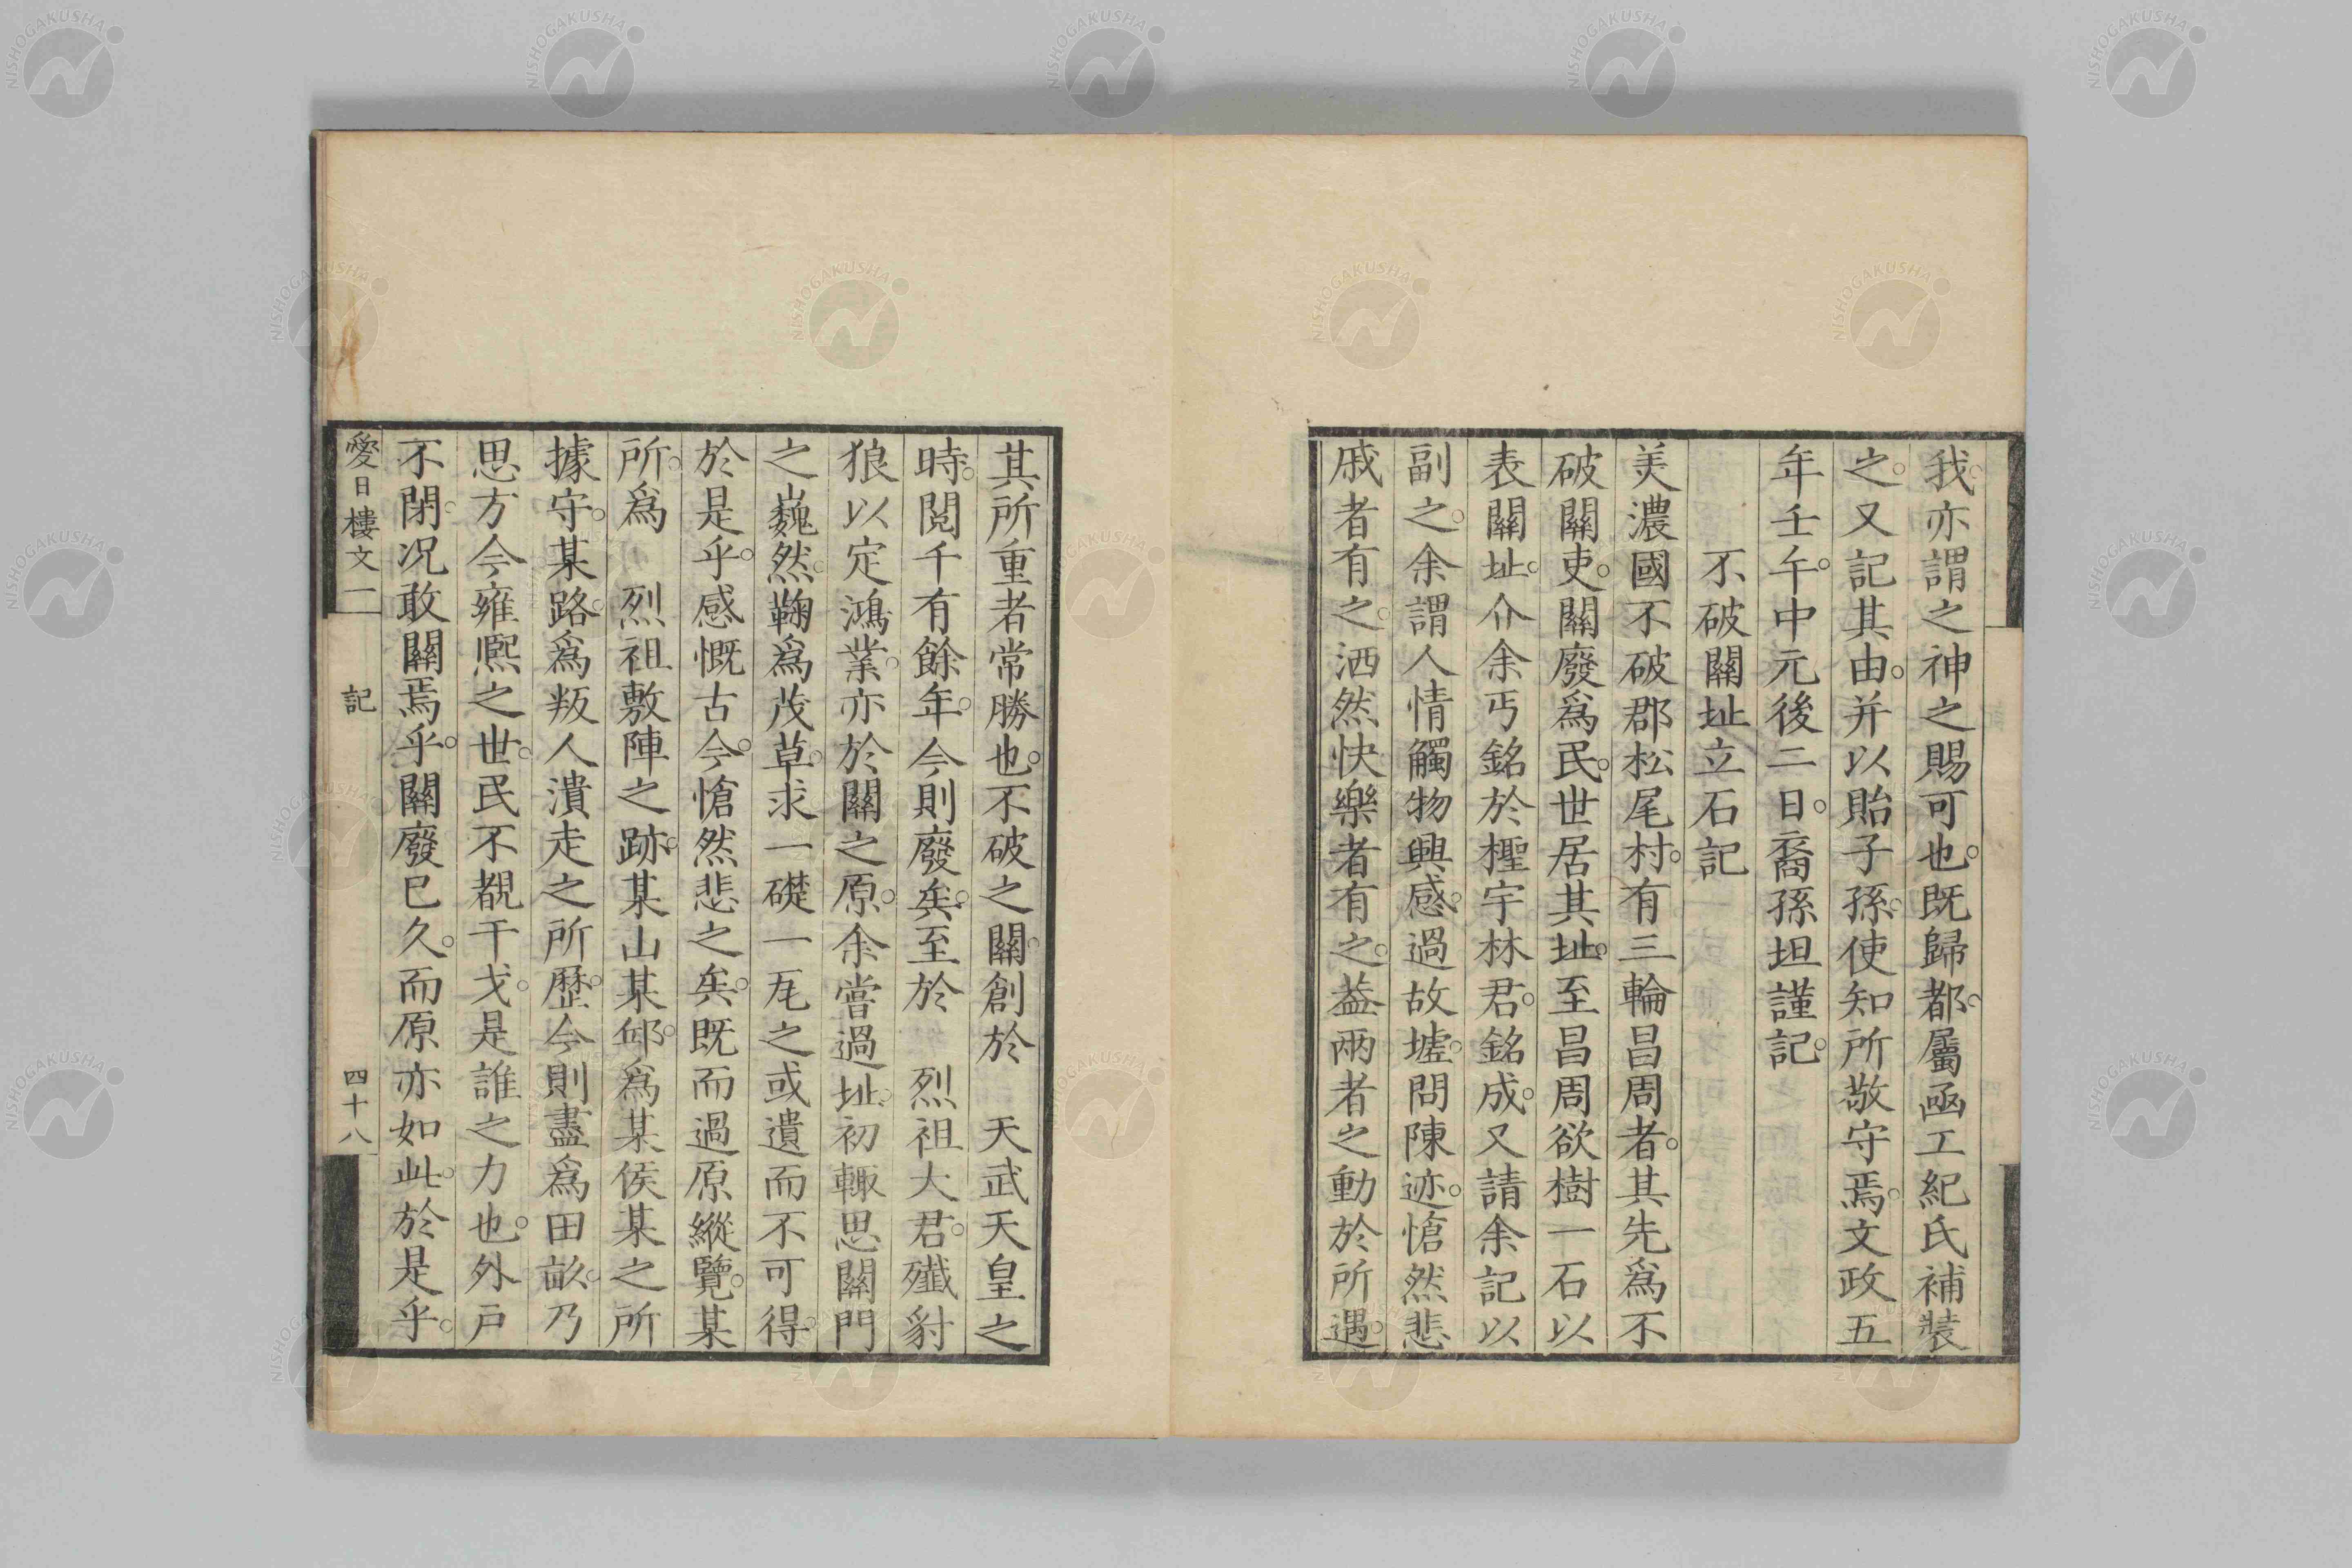 我亦謂之神之賜可也。既歸都。屬凾工紀氏補裝
之。又記其由。并以貽子孫。使知所敬守焉。文政五
年壬午。中元後二日。裔孫坦謹記。
不破關址立石記
美濃國不破郡松尾村。有三輪昌周者。其先爲不
破關吏。關廢爲民。世居其址。至昌周欲樹一石以
表關址。介余丐銘於檉宇林君。銘成。又請余記以
副之。余謂人情觸物興感。過故墟。問陳迹。愴然悲
戚者有之。洒然快樂者有之。葢兩者之動於所遇。
其所重者常勝也。不破之關。創於　天武天皇之
時。閲千有餘年。今則廢矣。至於　烈祖大君。殲豺
狼以定鴻業。亦於關之原。余嘗過址。初輙思關門
之巍然。鞠爲茂草。求一礎一瓦之或遺而不可得。
於是乎。感慨古今。愴然悲之矣。既而過原縱覽。某
所。爲　烈祖敷陣之跡。某山某邱。爲某侯某之所
據守。某路。爲叛人潰走之所歴。今則盡爲田畝。乃
思方今雍熈之世。民不覩干戈。是誰之力也。外戸
不閉。况敢關焉乎。關廢已久。而原亦如此。於是乎。
愛日樓文二　記　四十八
NISHOGAKUSHA